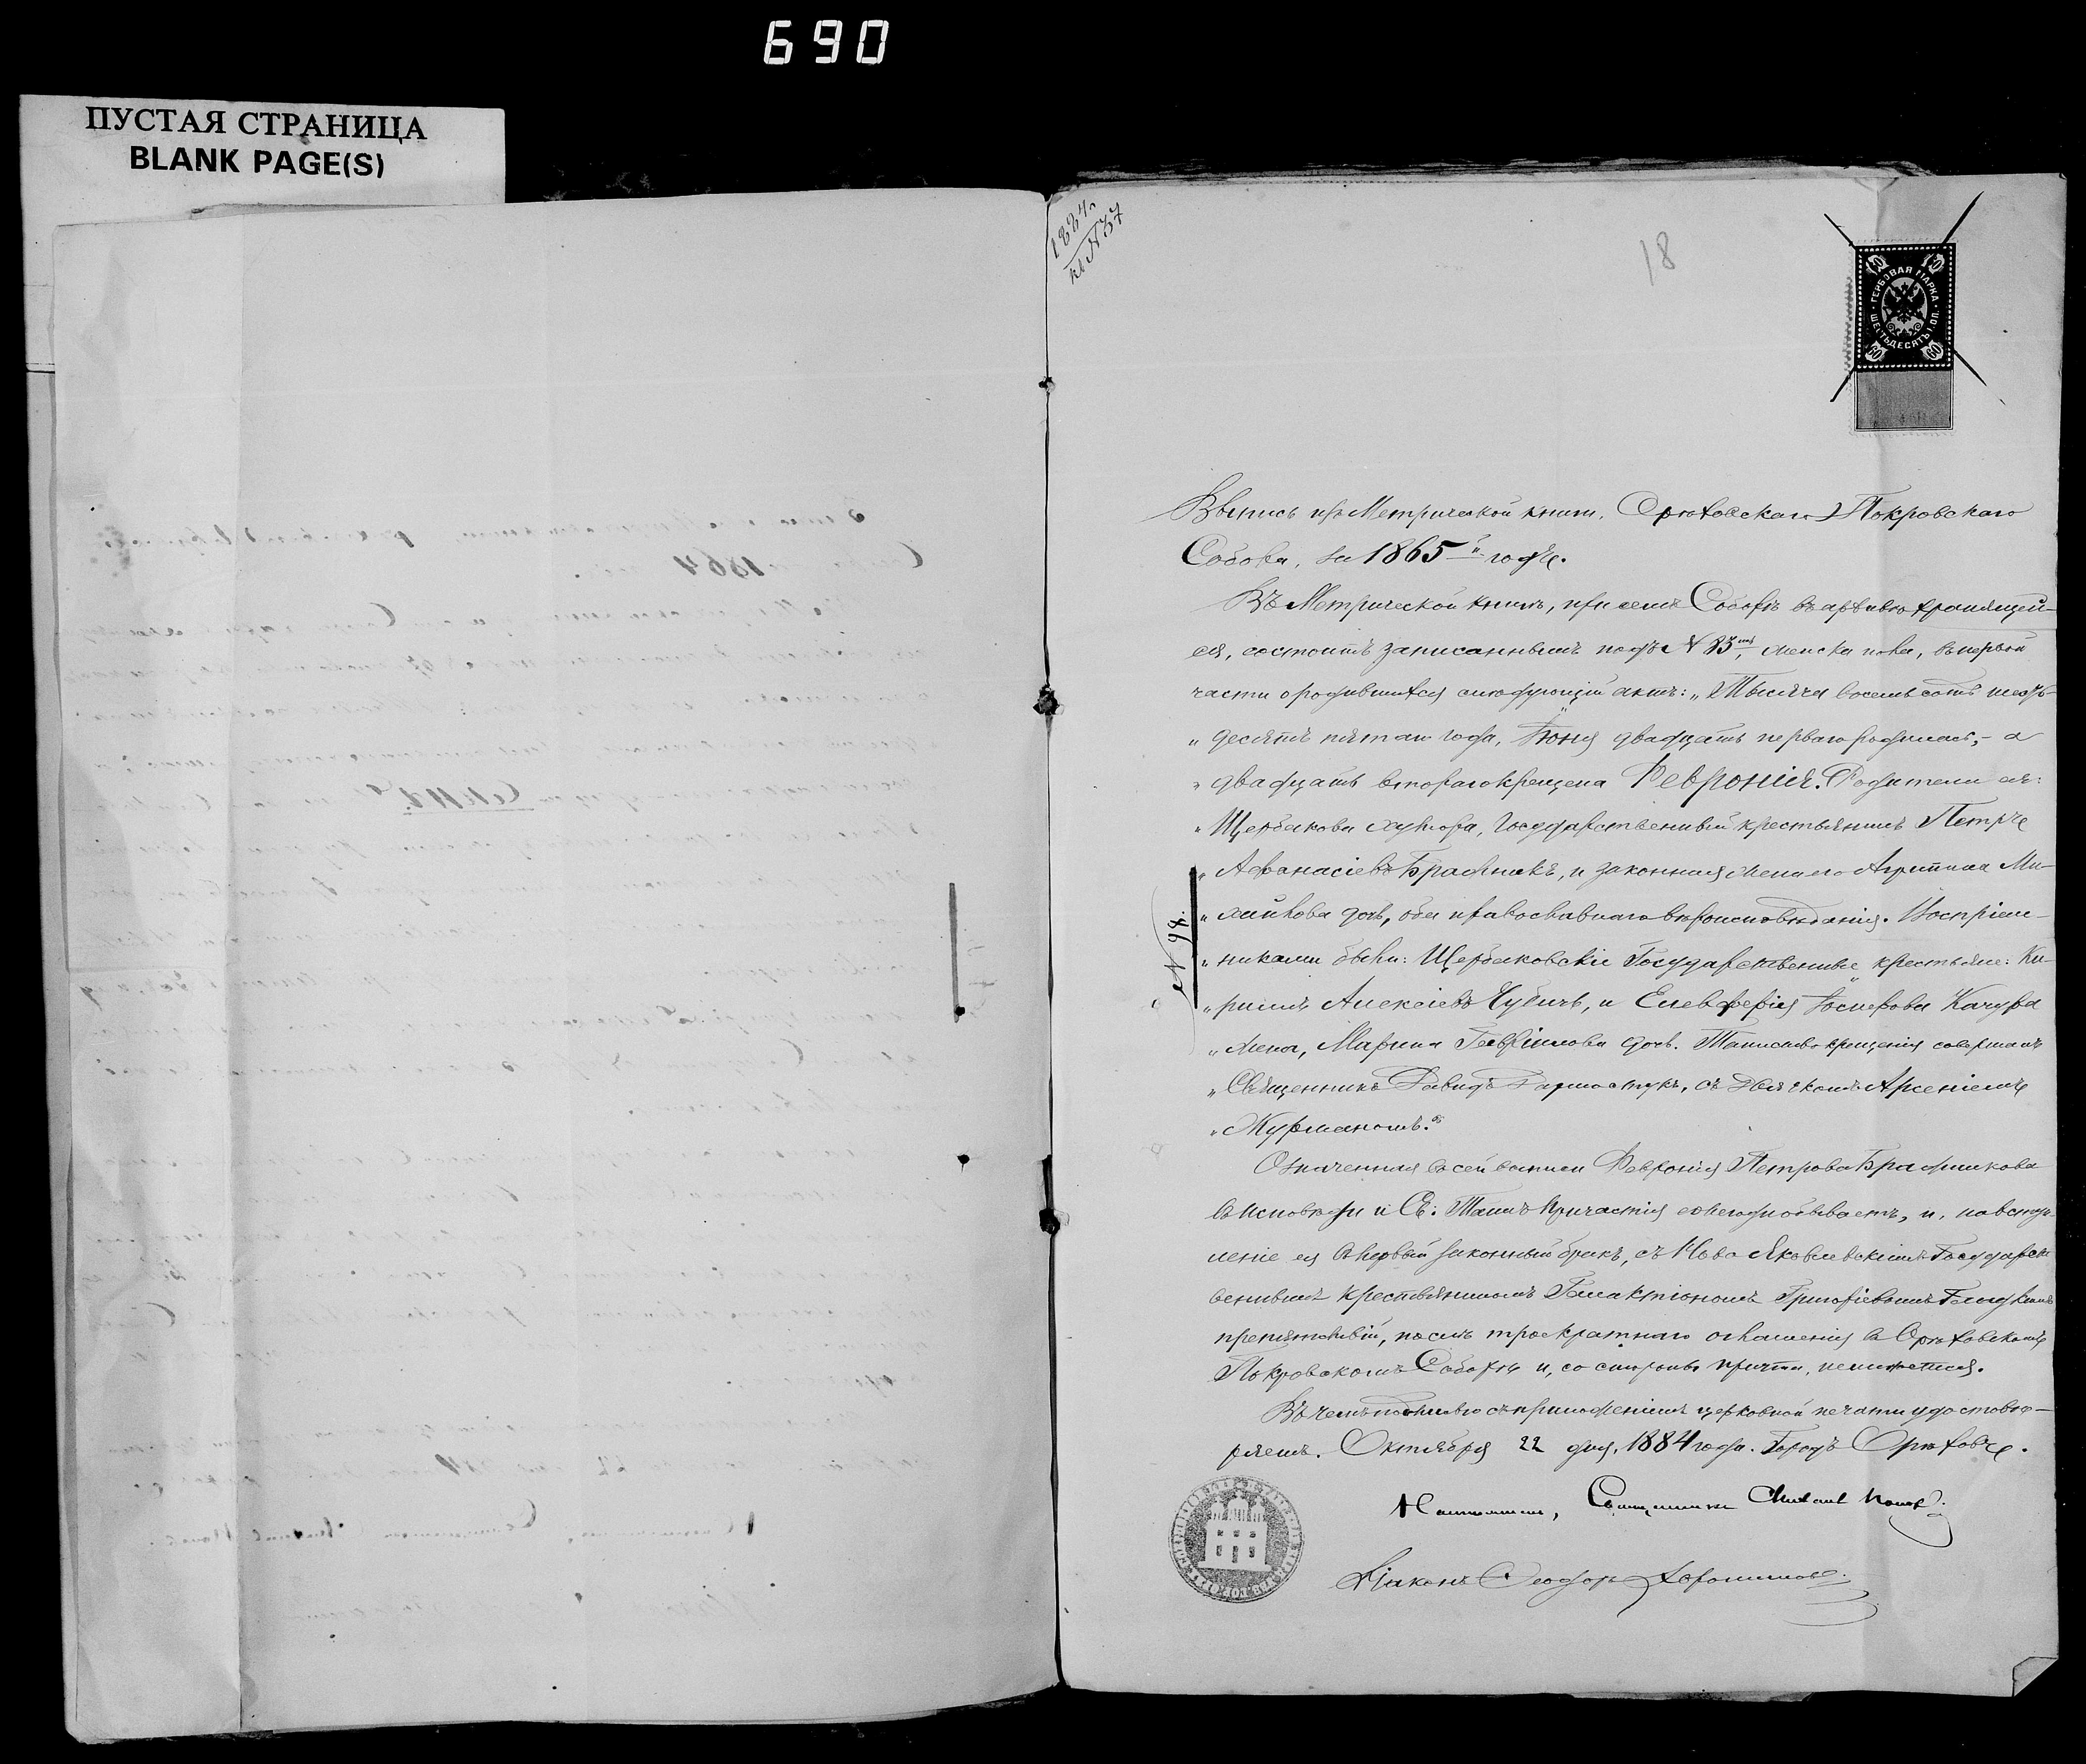 690
ПУСТАЯ СТРАНИЦА
BLANK PAGE(S)
1884 г.
къ № 37
18
ГЕРБОВАЯ МАРКА
ШЕСТЬДЕСЯТЪ КОП.
60
Выпись изъ Метрической книги, Орѣховскаго Покровскаго
Собора, за 1865й годъ.
Въ Метрической книгѣ, при семъ Соборѣ въ архивѣ хранящей-
ся, состоитъ записаннымъ подъ № 83мъ, женска пола, въ первой
части о родившихся слѣдующій актъ: „Тысяча восемь сотъ шесть-
„десятъ пятаго года, Іюня двадцать перваго родилась, – а
„двадцать втораго крещена Февронія. Родители ея:
„Щербакова хутора, Государственный крестьянинъ Петръ
„Афанасіевъ Бражникъ, и законная жена его Агрипина Ми-
„хайлова дочь, оба православнаго вѣроисповѣданія. Воспріем-
„никами были: Щербаковскіе Государственные крестьяне: Ки-
„риллъ Алексіевъ Чубичъ, и Елевферія Іосифова Качура
„жена, Марина Гавріилова дочь. Таинство крещенія совершалъ
„Священникъ Давидъ съ Дьячкомъ Арсеніемъ
„Журманомъ.“
№ 94.
Означенная въ сей выписи Февронія Петрова Бражникова
въ исповѣди и Св: Таинъ Причастія ежегодно бываетъ, и, на вступ-
леніе ея въ первый законный бракъ, съ Ново Яковлевскимъ Государст-
веннымъ крестьяниномъ Галактіономъ Григоріевымъ
препятствій, послѣ троекратнаго оглашенія въ Орѣховскомъ
Покровскомъ Соборѣ и, со стороны причта, неимѣется.
Въ чемъ подписью съ приложеніемъ церковной печати удостовѣ-
ряемъ. Октября 22 дня, 1884 года. Городъ Орѣховъ.
Настоятель, Священникъ Михаилъ Попов.
Діаконъ Феодоръ